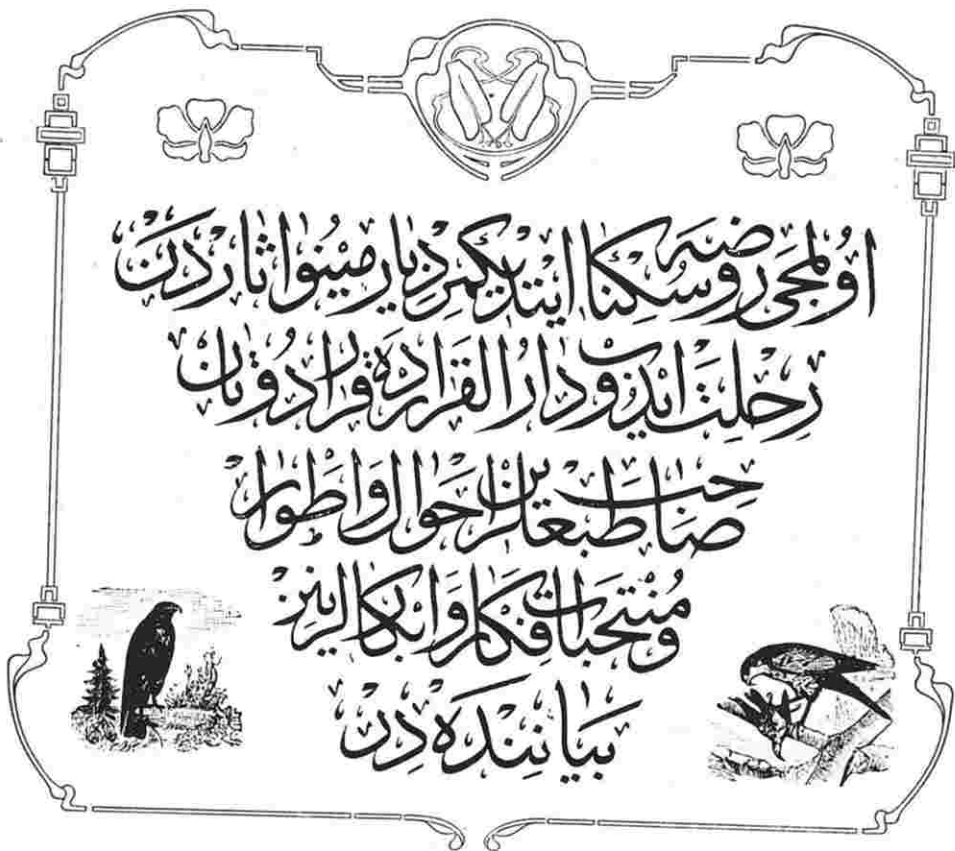 اولنجى روضه سكنا ايتديكمز ديار مينو اثاردن
رحلت ايدوب دار القرارده قرار دوتان
صاحب طبعلرين احوال و اطوار
و منتخبات افكار و ابكارلرينك
بياننده در